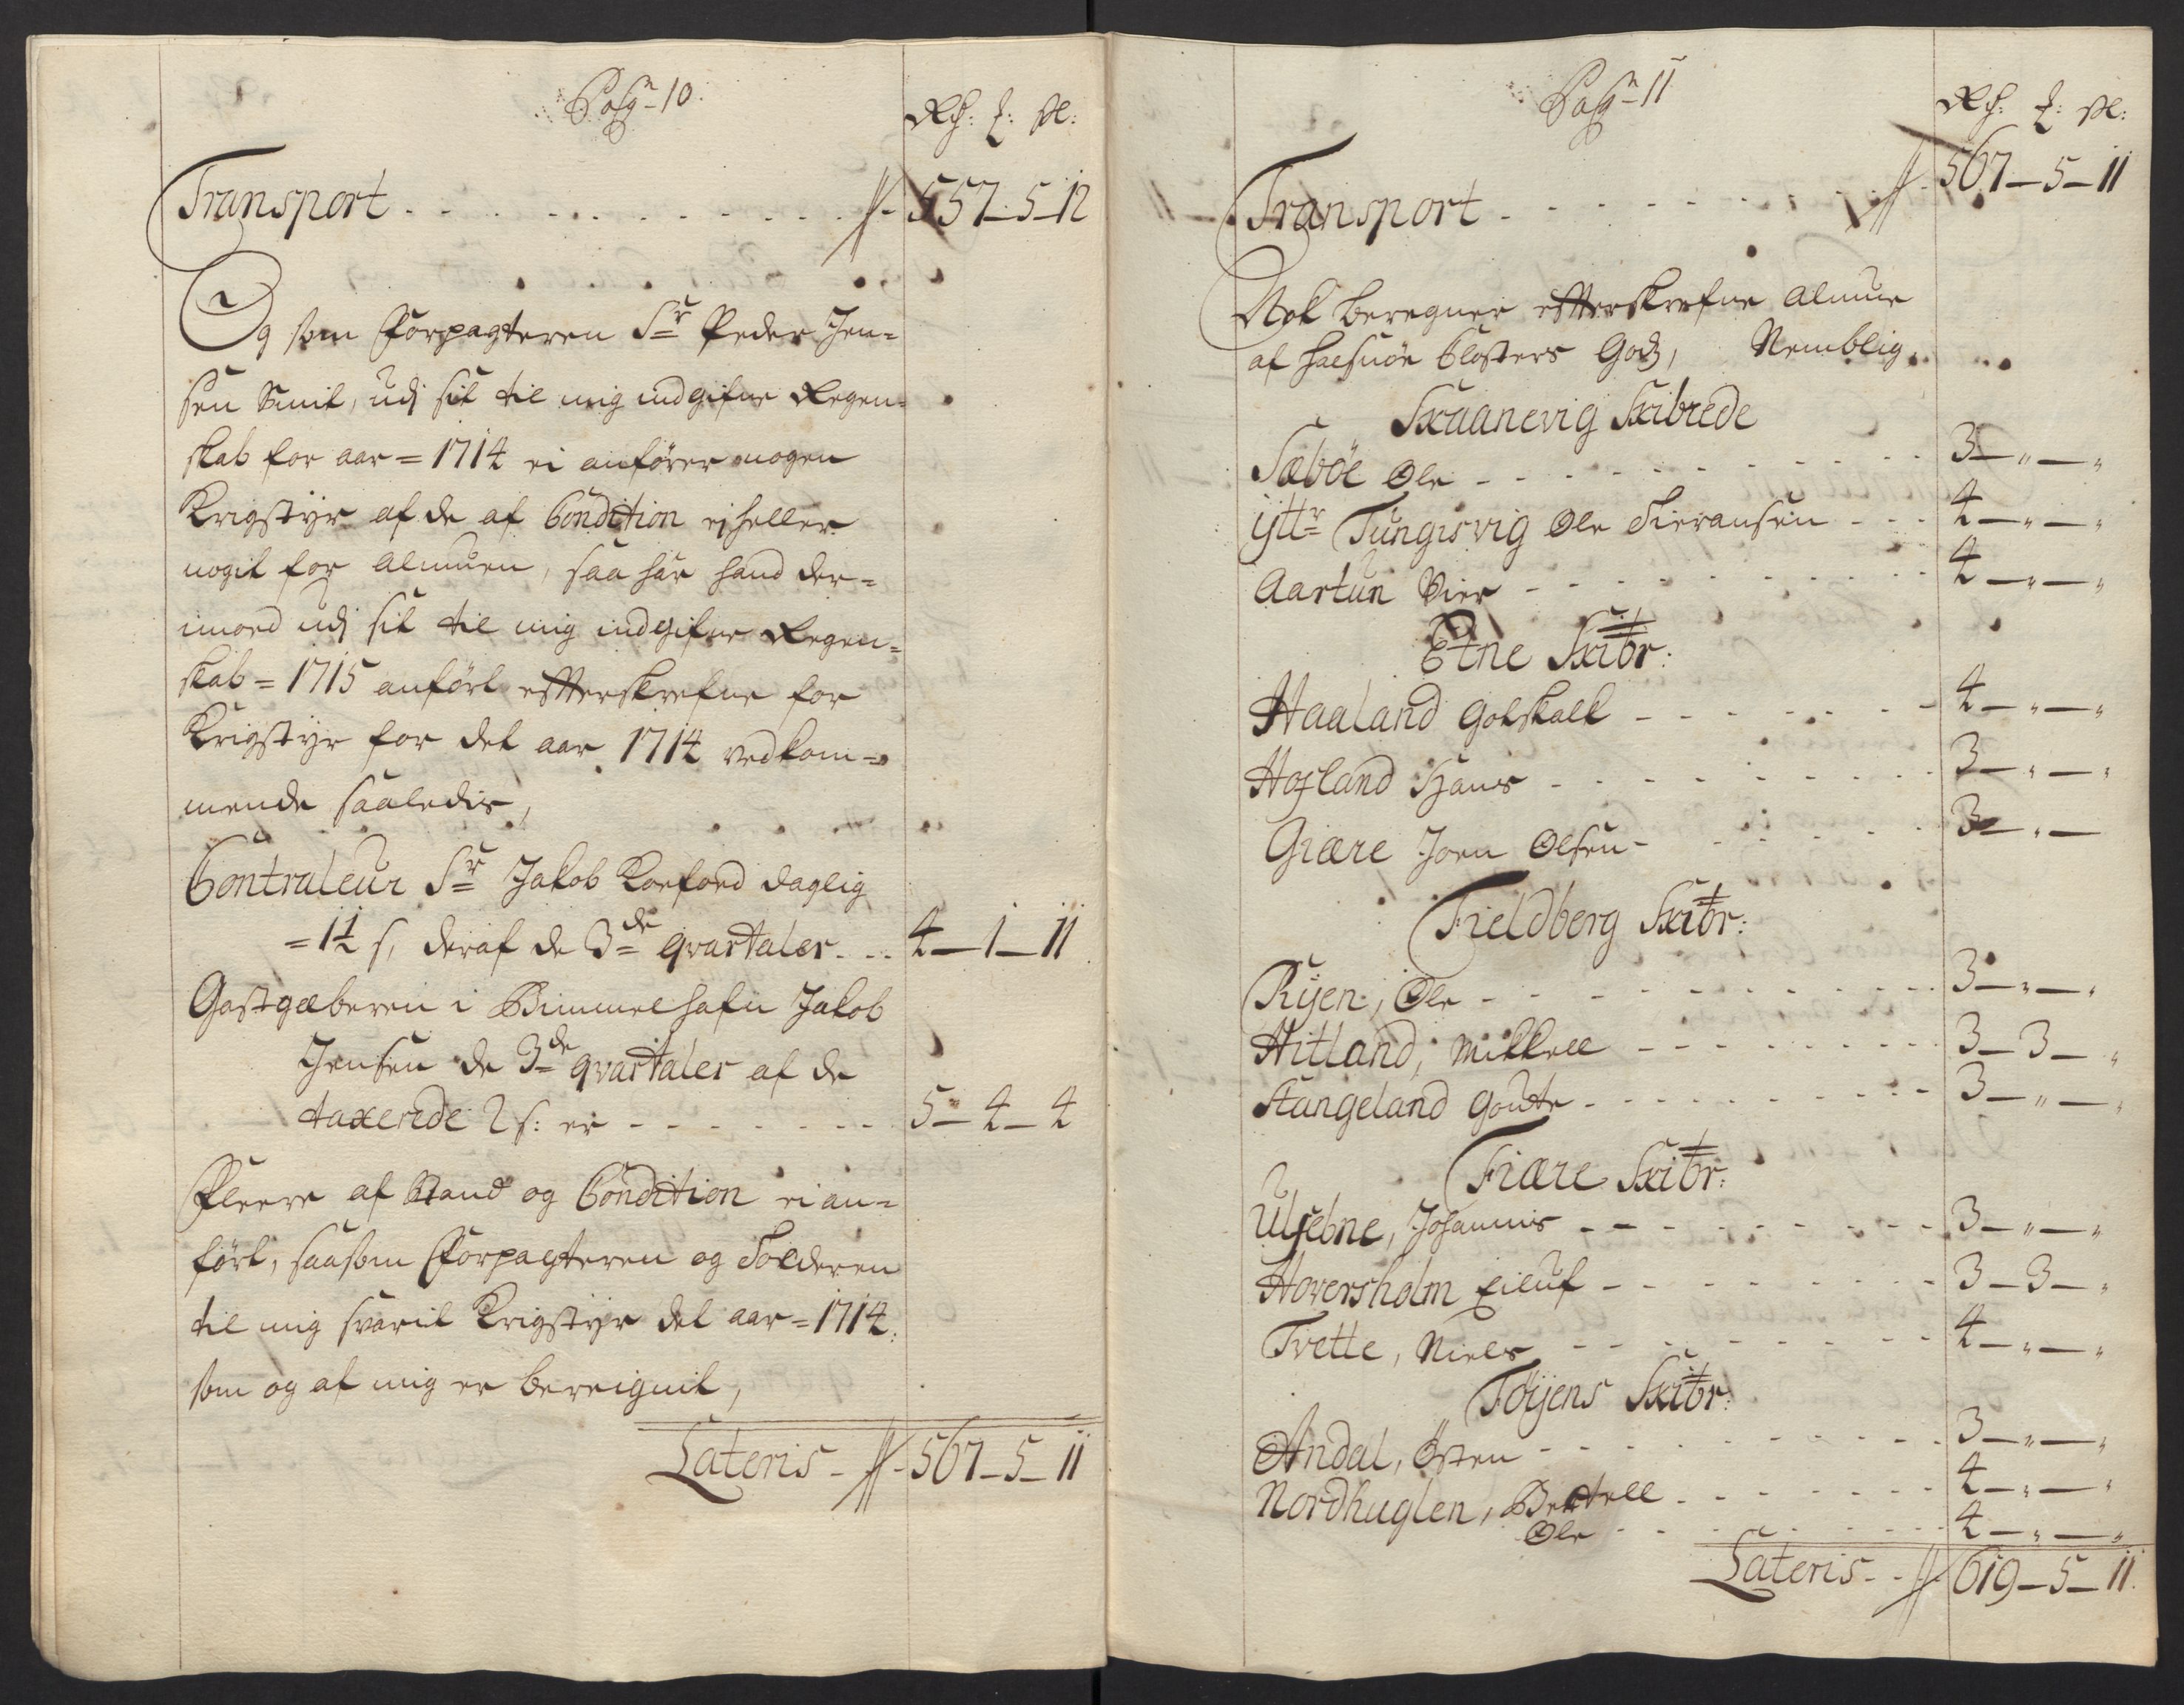 Pagn 10.
Rdr: £: sk:
Transport - - - - - - 557 - 5 - 12
Og som Forpagteren Sr Peder Jen=
sen Smit, udj sit til mig indgifne Regen=
skab for aar = 1714 ei anfører nogen
Krigstÿr af de af Condition ej heller
nogit for Almuen, saa har hand der=
imod udj sit til mig indgifne Regen=
skab = 1715 anført efterskrefne for
Krigstÿr for det aar 1714 vedkom=
mende saaledis,
Contraleur Sr Jakob Koefoed daglig
= 1½ s, deraf de 3de qvartaler - - 4 - 1 - 11
Gastgæberen i Bimmelhafn Jakob
Jensen de 3de qvartaler af de
taxerede 2 s: er - - - - - 5 - 4 - 4
Fleere af Stand og Condition ei an=
ført, saasom Forpagteren og Tolderen
til mig svarit Krigstÿr det aar = 1714.
som og af mig er bereignit,
Lateris - 567 - 5 - 11
Pagn 11
Rdr: £: sk:
Transport - - - - - - 567 - 5 - 11
Nok beregner efterskrefne Almue
af Halsnöe Closters Gods, Nemblig,
Skaanevig Skibrede
Sæböe Ole - - - - - - 3 - „ - „
ÿttr Tungisvig Ole Siversen - - - 4 - „ - „
Aartun Vier - - - - - - 4 - „ - „
Etne Skibr:
Haaland Gotskalk - - - - - 4 - „ - „
Hofland Hans - - - - - - 3 - „ - „
Giære Joen Olsen - - - - - 3 - „ -
Fieldberg Skibr:
Rÿen, Ole - - - - - - 3 - „ - „
Hitland, Mikkell - - - - - 3 - 3 - „
Stangeland Goute - - - - - 3 - „ - „
Fiære Skibr:
Ulfebne, Johannis - - - - - 3 - „ - „
Hoversholm Eiluf - - - - - 3 - 3 - „
Tvette, Niels - - - - - - 4 - „ - „
Föÿens Skibr:
Andal, Østen - - - - - - 3 - „ - „
Nordhuglen, Bertell - - - - 4 - „ - „
Ole - - - - - - 4 - „ - „
Lateris - - 619 - 5 - 11.